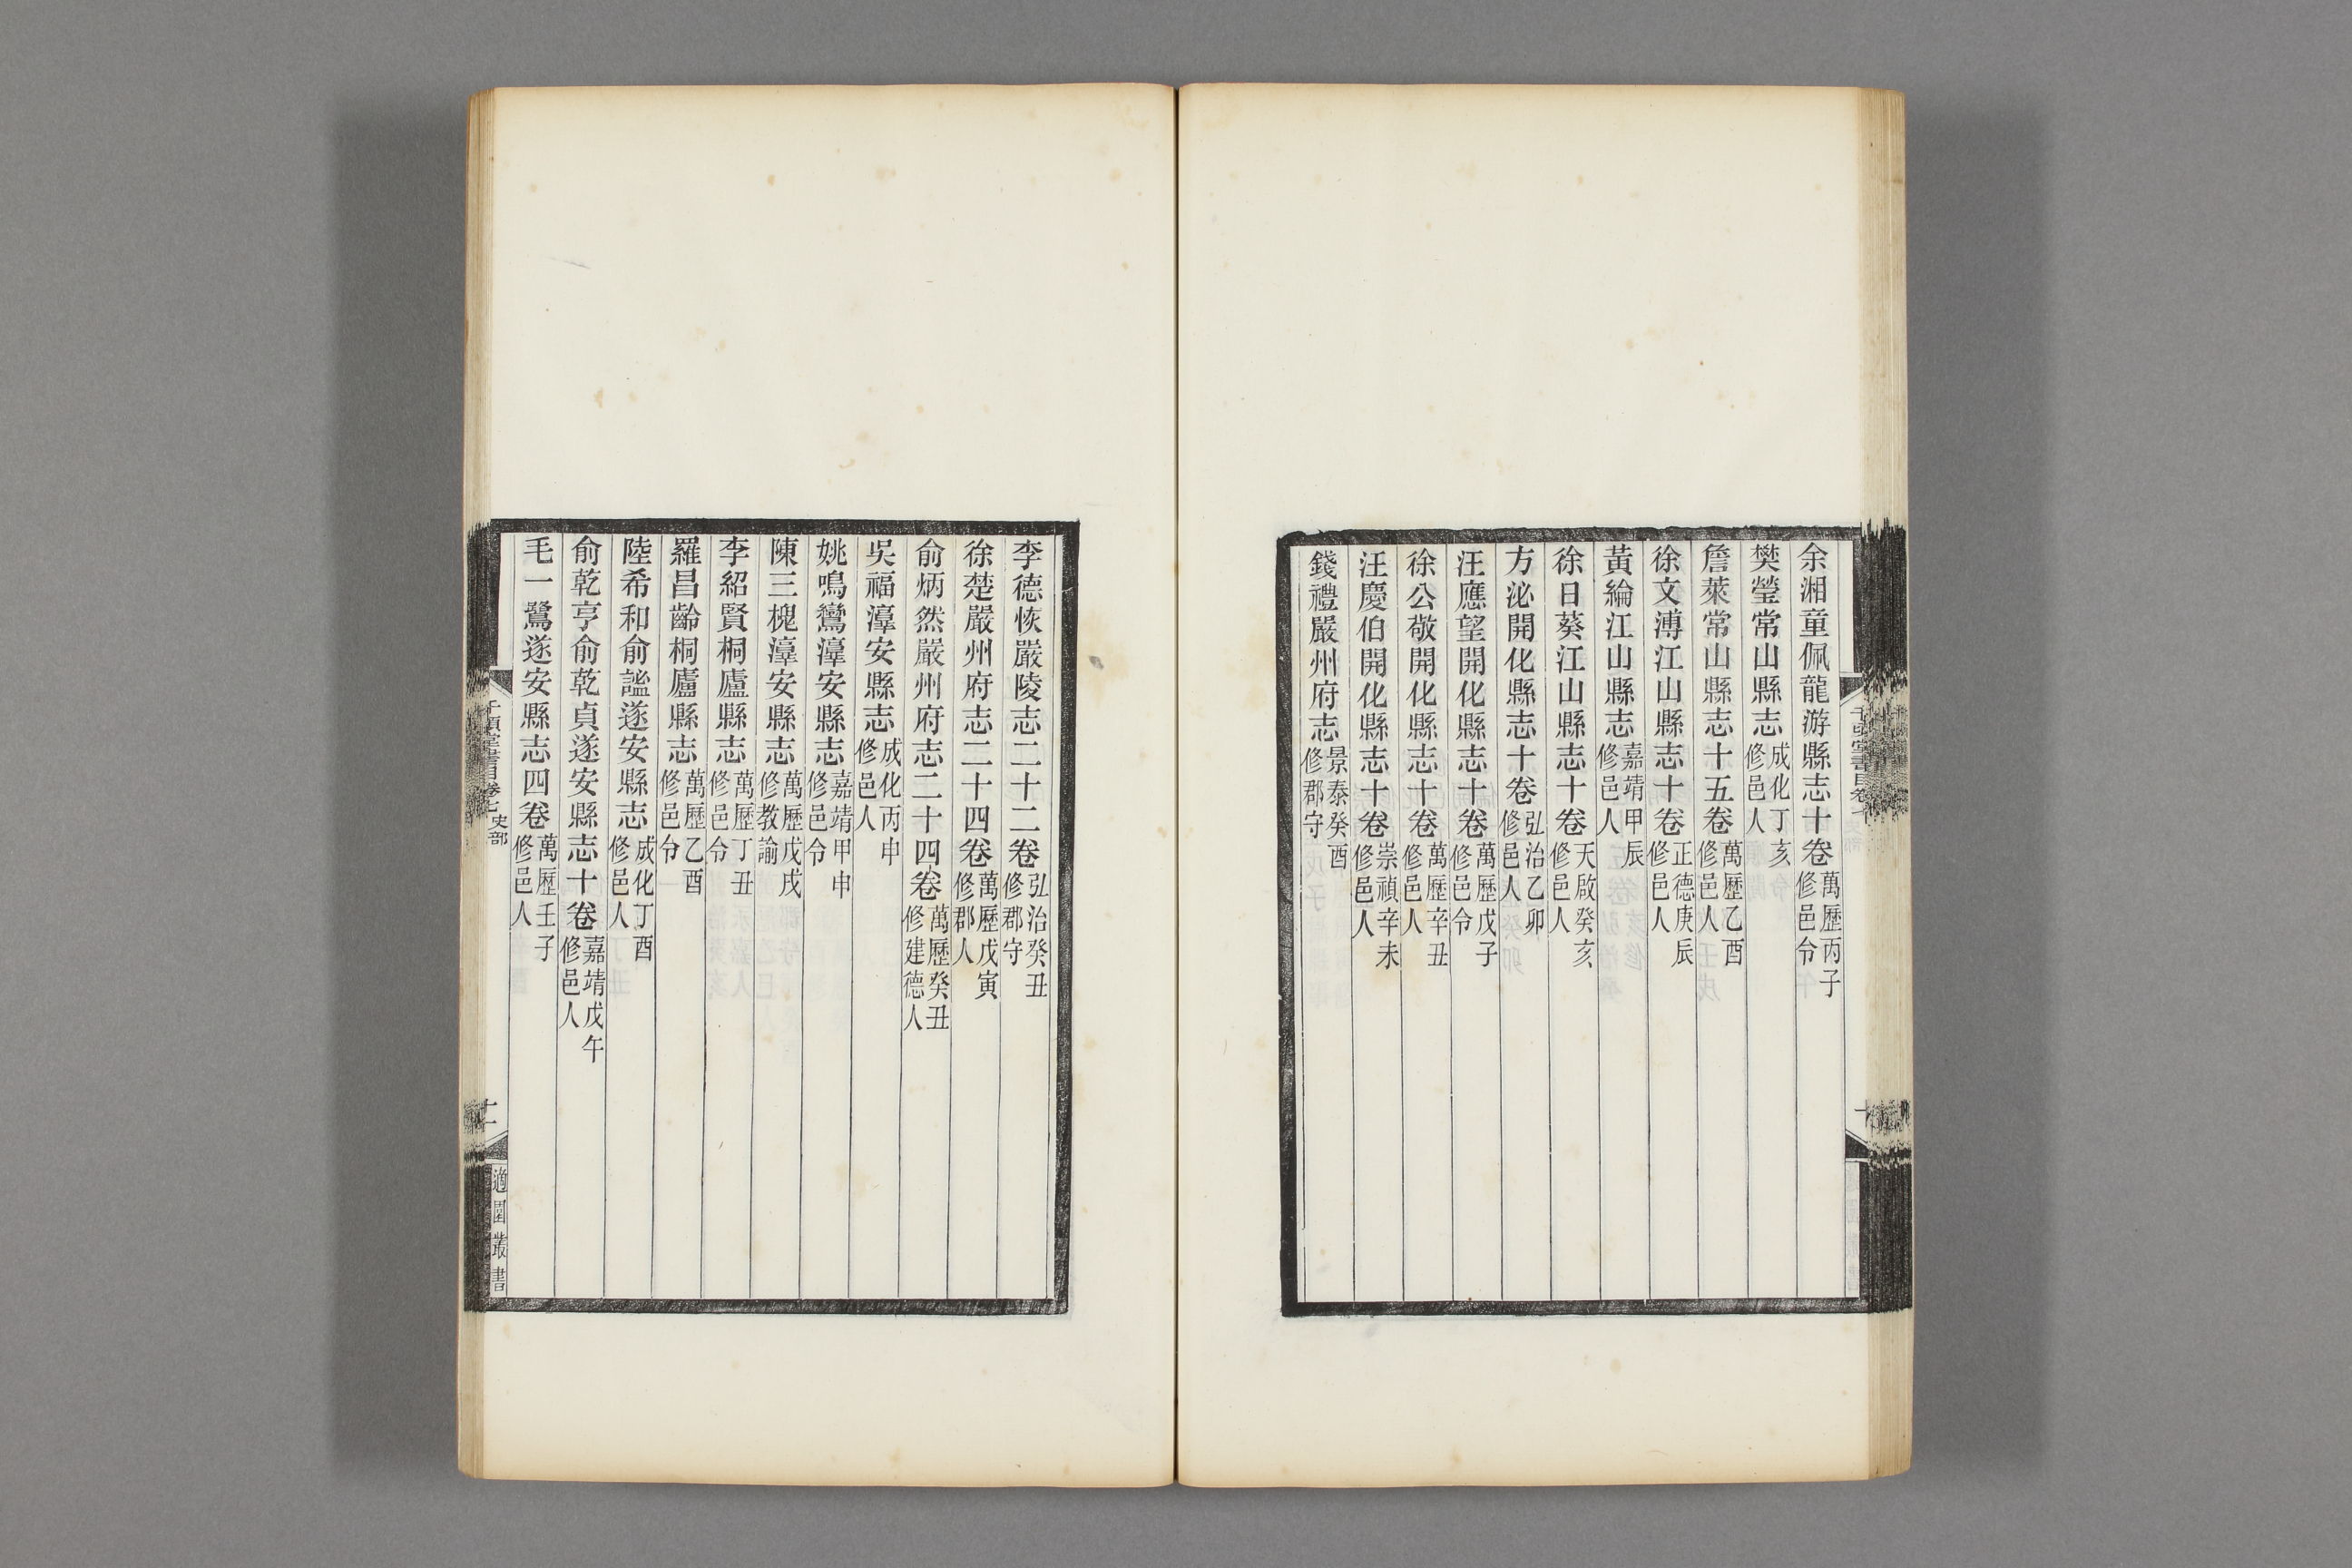 余湘童佩龍游縣志十卷萬歷丙子修邑令
樊瑩常山縣志成化丁亥修邑人
詹萊常山縣志十五卷萬歷乙酉修邑人
徐文溥江山縣志十卷正德庚辰修邑人
黃綸江山縣志嘉靖甲辰修邑人
徐日葵江山縣志十卷天啟癸亥修邑人
方泌開化縣志十卷弘治乙卯修邑人
汪應望開化縣志十卷萬歷戊子修邑令
徐公敬開化縣志十卷萬歷辛丑修邑人
汪慶伯開化縣志十卷崇禎辛未修邑人
錢禮嚴州府志景泰癸酉修郡守
李德恢嚴陵志二十二卷弘治癸丑修郡守
徐楚嚴州府志二十四卷萬歷戊寅修郡人
俞炳然嚴州府志二十四卷萬歷癸丑修建德人
吳福淳安縣志成化丙申修邑人
姚鳴鸞淳安縣志嘉靖甲申修邑令
陳三槐淳安縣志萬歷戊戌修教諭
李紹賢桐廬縣志萬歷丁丑修邑令
羅昌齡桐廬縣志萬歷乙酉修邑令
陸希和俞謐遂安縣志成化丁酉修邑人
俞乾亨俞乾貞遂安縣志十卷嘉靖戊午修邑人
毛一鷺遂安縣志四卷萬歷壬子修邑人
千頃堂書目卷七 史部
適園叢書